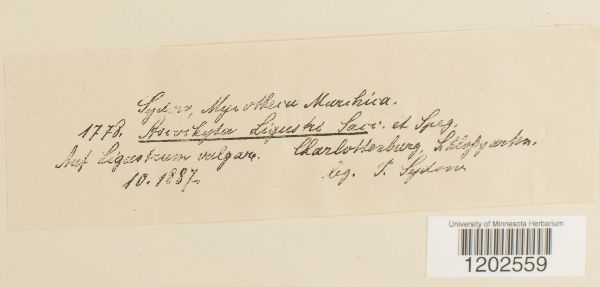 Sydow, Mycotheca Marchica.
1778. Ascochyta Ligustri Sacc. et Speg.
Auf Ligustrum vulgare. Charlottenburg, Schloßgarten.
10. 1887. leg. P. Sydow
University of Minnesota Herbarium
1202559